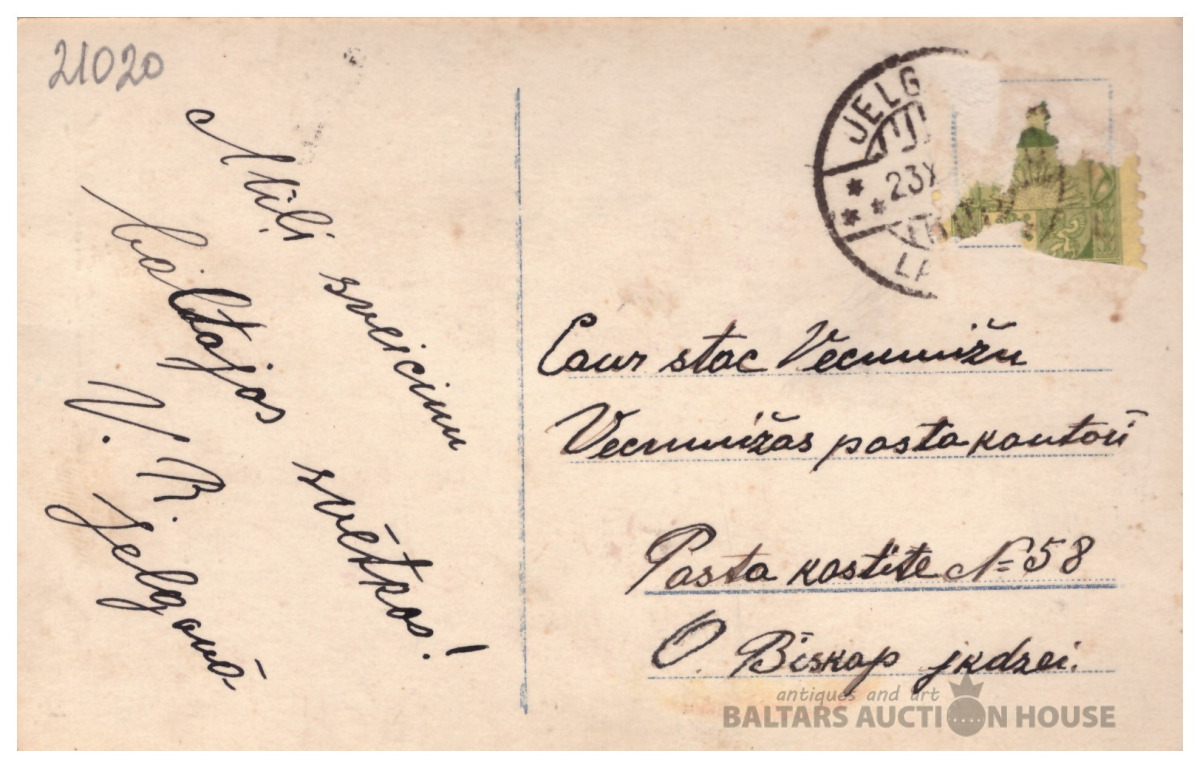 21020
Mīļi sveicinu
baltajos svētkos!
V. R.
Jelgavā
JELG
23X
LA
Caur stac Vecmuižu
Vecmuižas pasta kantorī
Pasta kastīte № 58
O. Bīskap jkdzei.
antiques and art
BALTARS AUCTION HOUSE